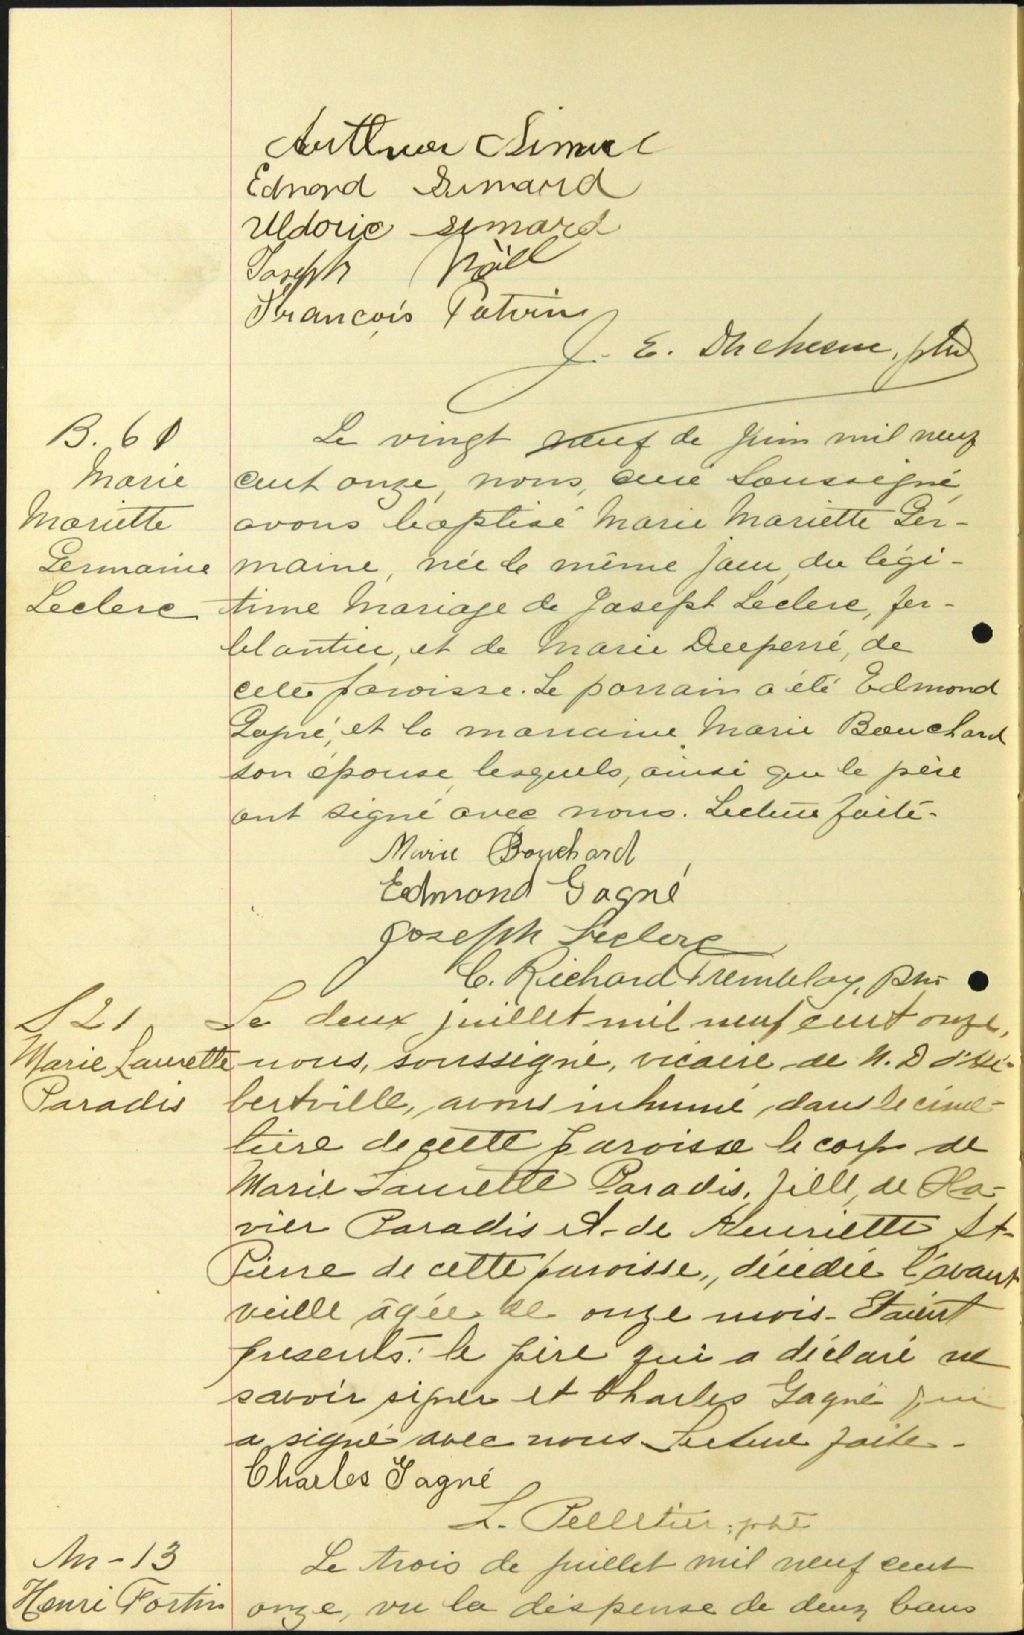 Arthur Simard
Edmond Simard
Uldoric Simard
Joseph Noël
François Potvin
J. E. Duchesne, ptre
B. 61
Marie
Mariette
Germaine
Leclerc
Le vingt neuf de juin mil neuf
cent onze, nous, curé soussigné,
avons baptisé Marie Mariette Ger-
maine, née le même jour, du légi-
time Mariage de Joseph Leclerc, fer-
blantier, et de Marie Duperré, de
cette paroisse. Le parrain a été Edmond
Gagné, et la marraine Marie Bouchard
son épouse, lesquels, ainsi que le père
ont signé avec nous. Lecture faite.
Marie Bouchard
Edmond Gagné
Joseph Leclerc
C. Richard Tremblay, ptre
S 21
Marie Laurette
Paradis
Le deux juillet mil neuf cent onze,
nous, soussigné, vicaire de N. D. d'Hé-
bertville, avons inhumé, dans le cime-
tière de cette paroisse le corps de
Marie Laurette Paradis, fille, de Xa-
vier Paradis et de Henriette St-
Pierre de cette paroisse, décédée l'avant
veille âgée de onze mois. Etaient
présents: le père qui a déclaré ne
savoir signer et Charles Gagné qui
a signé avec nous. Lecture faite.
Charles Gagné
L. Pelletier, ptre
M - 13
Henri Fortin
Le trois de juillet mil neuf cent
onze, vu la dispense de deux bans